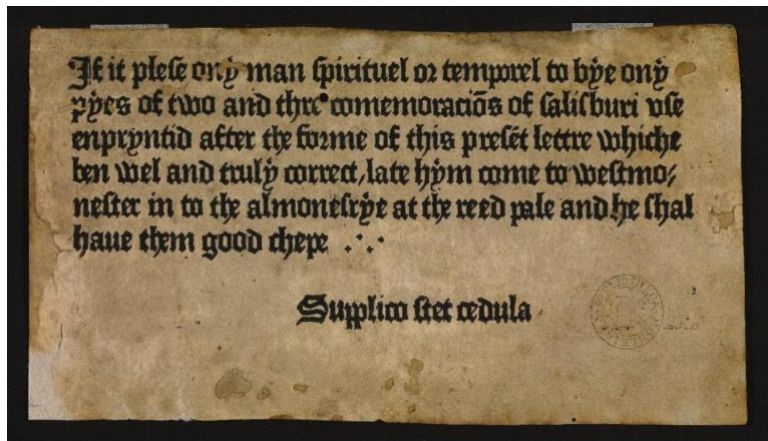 If it plese ony man spirituel or temporel to bye ony
pyes of two and thre comemoraciōs of salisburi vse
enpryntid after the forme of this presēt lettre whiche
ben wel and truly correct, late hym come to westmo,
nester in to the almonesrye at the reed pale and he shal
haue them good chepe .·.
Supplico stet cedula